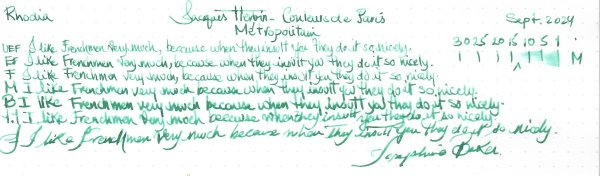 Rhodia Jacques Herbin - Couleurs de Paris Sept. 2024
Métropolitain
UEF I like Frenchmen very much, because when they insult you they do it so nicely. 30 25 20 15 10 5 1
EF I like Frenchmen very much, because when they insult you they do it so nicely. M
F I like Frenchmen very much because when they insult you they do it so nicely.
M I like Frenchmen very much because when they insult you they do it so nicely.
B I like Frenchmen very much because when they insult you they do it so nicely.
I like Frenchmen very much because when they insult you they do it so nicely.
I like Frenchmen very much because when they insult you they do it so nicely.
Josephine Baker